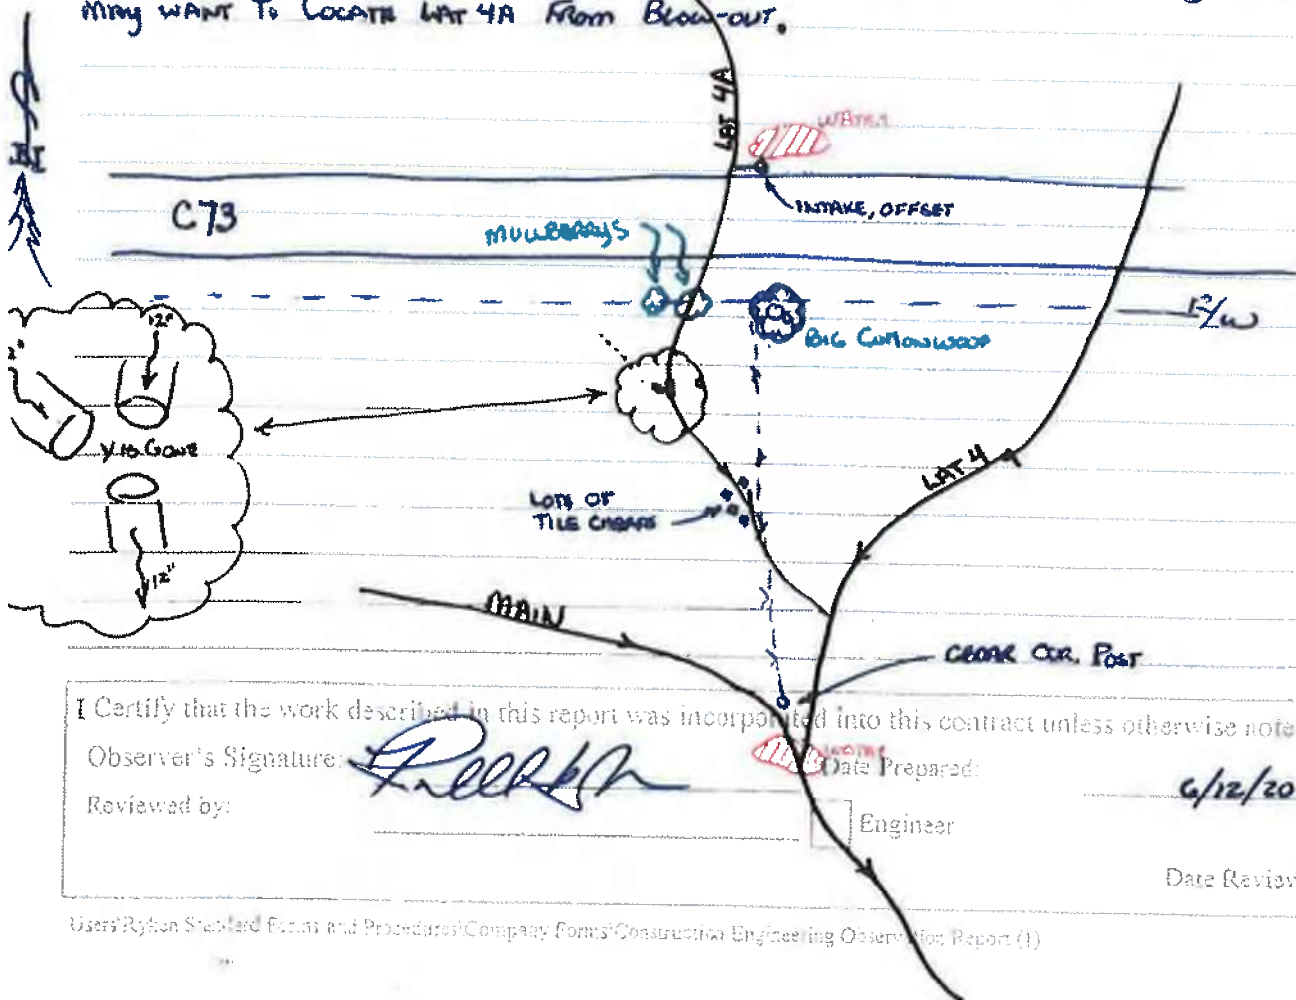 MAY WANT TO LOCATE LAT 4A FROM BLOW-OUT.
N
LAT 4A
WATER
C73
INTAKE, OFFSET
MULLBERRYS
R/W
BIG COTTONWOOD
12"
12"
Y IS GONE
12"
LAT 4
LOTS OF
TILE CHEARS
MAIN
CEDAR COR. POST
I Certify that the work described in this report was incorporated into this contract unless otherwise note
Observer's Signature:
WATER
Date Prepared:
6/12/20
Reviewed by:
Engineer
Date Review
Users\Ryken Standard Forms and Procedures\Company Forms\Construction Engineering Observation Report (1)